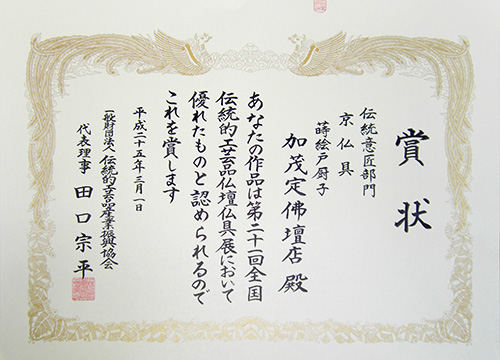 賞状
伝統意匠部門
京仏具
蒔絵戸厨子
加茂定佛壇店 殿
あなたの作品は第二十一回全国
伝統的工芸品仏壇仏具展において
優れたものと認められるので
これを賞します
平成二十五年三月一日
一般財団法人 伝統的工芸品産業振興協会
代表理事 田口宗平